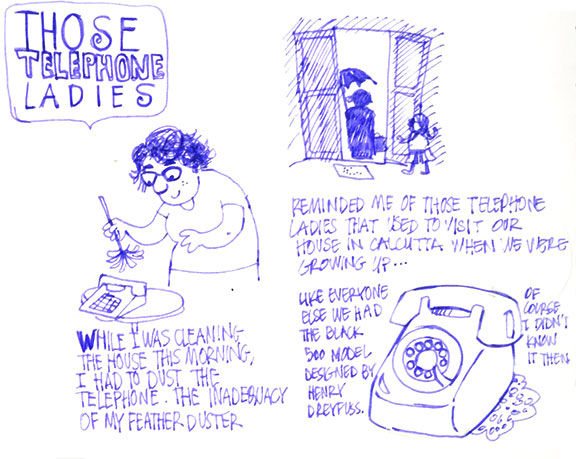 THOSE
TELEPHONE
LADIES
WHILE I WAS CLEANING
THE HOUSE THIS MORNING,
I HAD TO DUST THE
TELEPHONE. THE INADEQUACY
OF MY FEATHER DUSTER
REMINDED ME OF THOSE TELEPHONE
LADIES THAT USED TO VISIT OUR
HOUSE IN CALCUTTA WHEN WE WERE
GROWING UP...
LIKE EVERYONE
ELSE WE HAD
THE BLACK
500 MODEL
DESIGNED BY
HENRY
DREYFUSS.
OF
COURSE
I DIDN'T
KNOW
IT THEN